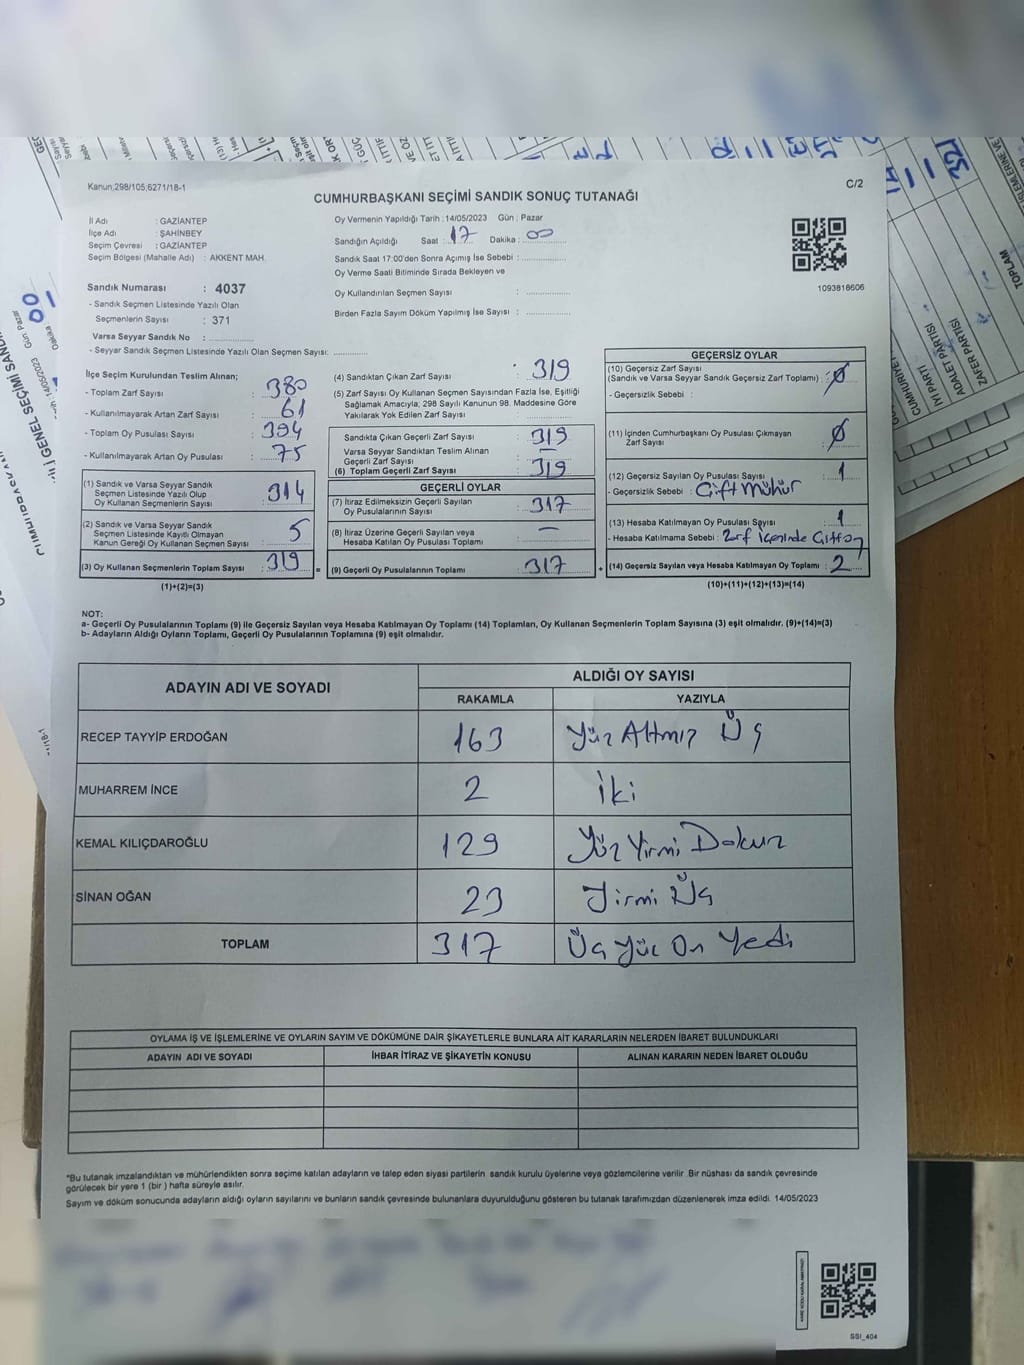 Kanun;298/105;6271/18-1
C/2
CUMHURBAŞKANI SEÇİMİ SANDIK SONUÇ TUTANAĞI
İl Adı : GAZİANTEP
İlçe Adı : ŞAHİNBEY
Seçim Çevresi : GAZİANTEP
Seçim Bölgesi (Mahalle Adı) : AKKENT MAH.
Sandık Numarası : 4037
- Sandık Seçmen Listesinde Yazılı Olan
Seçmenlerin Sayısı : 371
Varsa Seyyar Sandık No : ..............
- Seyyar Sandık Seçmen Listesinde Yazılı Olan Seçmen Sayısı: ............
Oy Vermenin Yapıldığı Tarih : 14/05/2023 Gün : Pazar
Sandığın Açıldığı Saat : 17 Dakika : 00
Sandık Saat 17:00'den Sonra Açımış İse Sebebi : ..............
Oy Verme Saati Bitiminde Sırada Bekleyen ve
Oy Kullandırılan Seçmen Sayısı : ..............
Birden Fazla Sayım Döküm Yapılmış İse Sayısı : ..............
1093818606
İlçe Seçim Kurulundan Teslim Alınan;
- Toplam Zarf Sayısı : 380
- Kullanılmayarak Artan Zarf Sayısı : 61
- Toplam Oy Pusulası Sayısı : 394
- Kullanılmayarak Artan Oy Pusulası : 75
(1) Sandık ve Varsa Seyyar Sandık
Seçmen Listesinde Yazılı Olup
Oy Kullanan Seçmenlerin Sayısı : 314
(2) Sandık ve Varsa Seyyar Sandık
Seçmen Listesinde Kayıtlı Olmayan
Kanun Gereği Oy Kullanan Seçmen Sayısı : 5
(3) Oy Kullanan Seçmenlerin Toplam Sayısı : 319
(1)+(2)=(3)
(4) Sandıktan Çıkan Zarf Sayısı : 319
(5) Zarf Sayısı Oy Kullanan Seçmen Sayısından Fazla İse, Eşitliği
Sağlamak Amacıyla; 298 Sayılı Kanunun 98. Maddesine Göre
Yakılarak Yok Edilen Zarf Sayısı : ..............
Sandıkta Çıkan Geçerli Zarf Sayısı : 319
Varsa Seyyar Sandıktan Teslim Alınan
Geçerli Zarf Sayısı : —
(6) Toplam Geçerli Zarf Sayısı : 319
GEÇERLİ OYLAR
(7) İtiraz Edilmeksizin Geçerli Sayılan
Oy Pusulalarının Sayısı : 317
(8) İtiraz Üzerine Geçerli Sayılan veya
Hesaba Katılan Oy Pusulası Toplamı : —
(9) Geçerli Oy Pusulalarının Toplamı : 317
GEÇERSİZ OYLAR
(10) Geçersiz Zarf Sayısı
(Sandık ve Varsa Seyyar Sandık Geçersiz Zarf Toplamı) : Ø
- Geçersizlik Sebebi :
(11) İçinden Cumhurbaşkanı Oy Pusulası Çıkmayan
Zarf Sayısı : Ø
(12) Geçersiz Sayılan Oy Pusulası Sayısı : 1
- Geçersizlik Sebebi : Çift Mühür
(13) Hesaba Katılmayan Oy Pusulası Sayısı : 1
- Hesaba Katılmama Sebebi : Zarf İçerinde Çift oy
(14) Geçersiz Sayılan veya Hesaba Katılmayan Oy Toplamı : 2
(10)+(11)+(12)+(13)=(14)
NOT:
a- Geçerli Oy Pusulalarının Toplamı (9) ile Geçersiz Sayılan veya Hesaba Katılmayan Oy Toplamı (14) Toplamları, Oy Kullanan Seçmenlerin Toplam Sayısına (3) eşit olmalıdır. (9)+(14)=(3)
b- Adayların Aldığı Oyların Toplamı, Geçerli Oy Pusulalarının Toplamına (9) eşit olmalıdır.
ADAYIN ADI VE SOYADI ALDIĞI OY SAYISI
RAKAMLA YAZIYLA
RECEP TAYYİP ERDOĞAN 163 Yüz Altmış Üç
MUHARREM İNCE 2 İki
KEMAL KILIÇDAROĞLU 129 Yüz Yirmi Dokuz
SİNAN OĞAN 23 Yirmi Üç
TOPLAM 317 Üç Yüz On Yedi
OYLAMA İŞ VE İŞLEMLERİNE VE OYLARIN SAYIM VE DÖKÜMÜNE DAİR ŞİKAYETLERLE BUNLARA AİT KARARLARIN NELERDEN İBARET BULUNDUKLARI
ADAYIN ADI VE SOYADI İHBAR İTİRAZ VE ŞİKAYETİN KONUSU ALINAN KARARIN NEDEN İBARET OLDUĞU
*Bu tutanak imzalandıktan ve mühürlendikten sonra seçime katılan adayların ve talep eden siyasi partilerin sandık kurulu üyelerine veya gözlemcilerine verilir. Bir nüshası da sandık çevresinde
görülecek bir yere 1 (bir ) hafta süreyle asılır.
Sayım ve döküm sonucunda adayların aldığı oyların sayılarını ve bunların sandık çevresinde bulunanlara duyurulduğunu gösteren bu tutanak tarafımızdan düzenlenerek imza edildi. 14/05/2023
SSI_404
CUMHURİYET
İYİ PARTİ
ADALET PARTİSİ
ZAFER PARTİSİ
TOPLAM